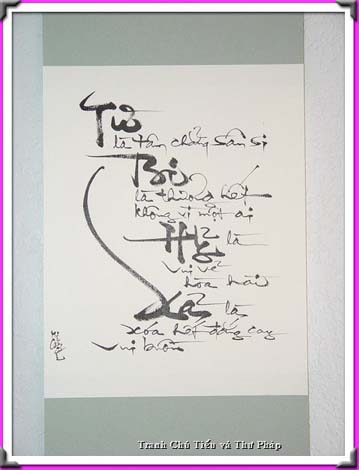 Từ
là tâm chẳng sân si
Bi
là thương hết
không vì một ai
Hỷ là
vui vẻ
hòa hài
Xả là
xóa hết đắng cay
vui buồn
Tranh Chú Tiểu và Thư Pháp